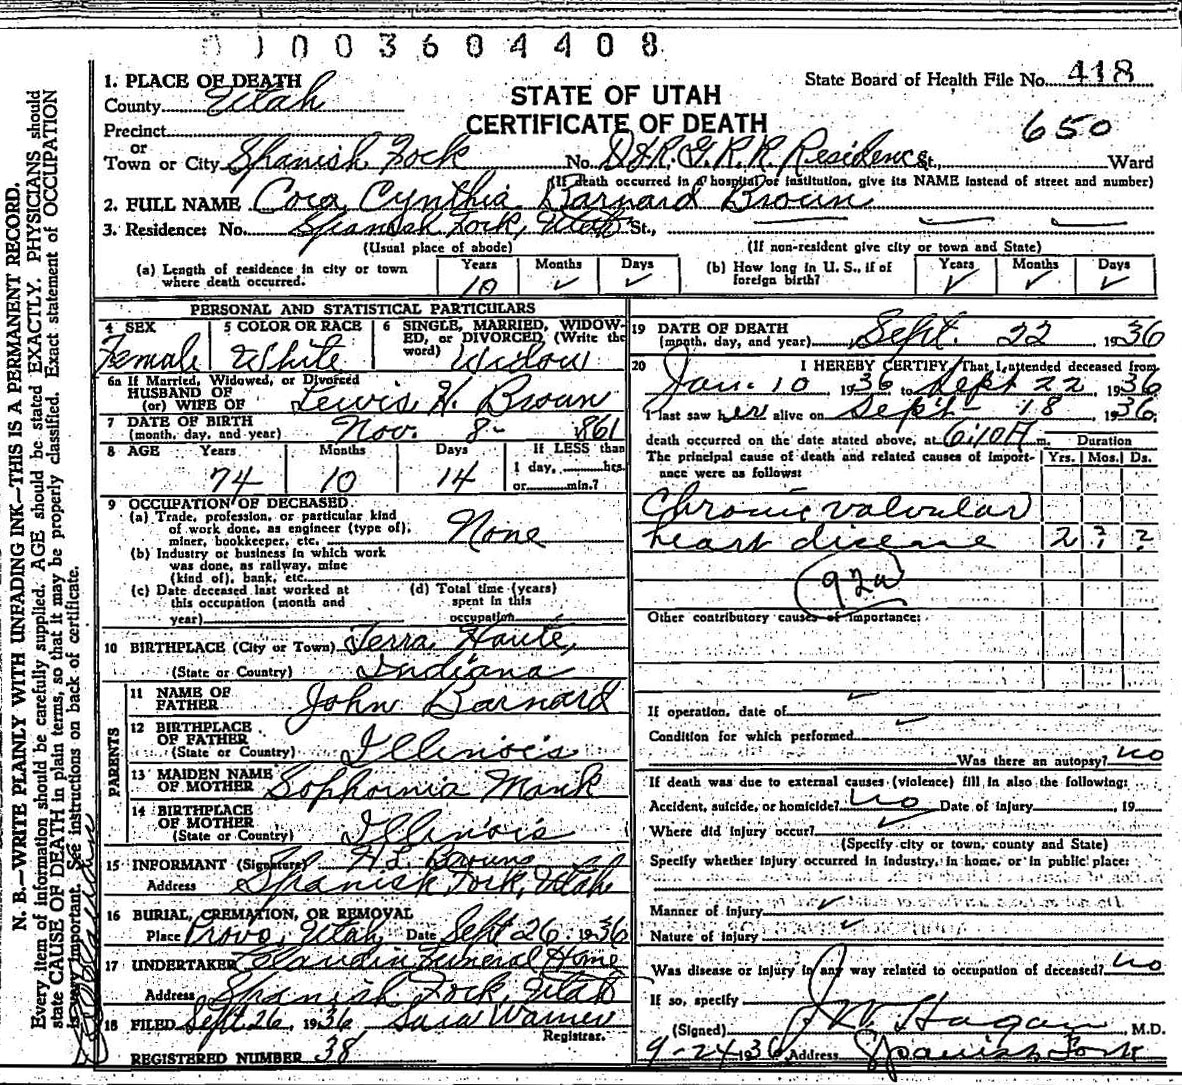 01003604408
1. PLACE OF DEATH
State Board of Health File No. 418
County Utah
STATE OF UTAH
CERTIFICATE OF DEATH
650
Precinct
or
Town or City Spanish Fork No. D&R.G.R.R. Residence St., Ward
(If death occurred in a hospital or institution, give its NAME instead of street and number)
2. FULL NAME Cora Cynthia Barnard Brown
3. Residence: No. Spanish Fork, Utah St.,
(Usual place of abode) (If non-resident give city or town and State)
(a) Length of residence in city or town where death occurred. Years 10 Months ✓ Days ✓
(b) How long in U. S., if of foreign birth? Years ✓ Months ✓ Days ✓
PERSONAL AND STATISTICAL PARTICULARS
4 SEX Female
5 COLOR OR RACE White
6 SINGLE, MARRIED, WIDOWED, OR DIVORCED (Write the word) Widow
6a If Married, Widowed, or Divorced
HUSBAND OF
(or) WIFE OF Lewis H. Brown
7 DATE OF BIRTH
(month, day, and year) Nov. 8- 1861
8 AGE Years 74 Months 10 Days 14
If LESS than
1 day, hrs.
or min.?
9 OCCUPATION OF DECEASED
(a) Trade, profession, or particular kind
of work done, as engineer (type of),
miner, bookkeeper, etc. None
(b) Industry or business in which work
was done, as railway, mine
(kind of), bank, etc.
(c) Date deceased last worked at
this occupation (month and
year)
(d) Total time (years)
spent in this
occupation
10 BIRTHPLACE (City or Town) Terra Haute,
(State or Country) Indiana
PARENTS
11 NAME OF
FATHER John Barnard
12 BIRTHPLACE
OF FATHER
(State or Country) Illinois
13 MAIDEN NAME
OF MOTHER Sophornia Mank
14 BIRTHPLACE
OF MOTHER
(State or Country) Illinois
15 INFORMANT (Signature) H L Brown
Address Spanish Fork, Utah
16 BURIAL, CREMATION, OR REMOVAL
Place Provo, Utah Date Sept 26 1936
17 UNDERTAKER Claudin Funeral Home
Address Spanish Fork, Utah
18 FILED Sept 26, 1936, Sara Warner
Registrar.
REGISTERED NUMBER 38
19 DATE OF DEATH
(month, day, and year) Sept. 22, 1936
20 I HEREBY CERTIFY, That I attended deceased from
Jan. 10 1936 to Sept 22, 1936
I last saw her alive on Sept- 18 1936.
death occurred on the date stated above, at 6:10 A m. Duration
The principal cause of death and related causes of importance were as follows: Yrs. Mos. Ds.
Chronic valvular
heart disease 2 ? ?
92a
Other contributory causes of importance:
If operation, date of ✓
Condition for which performed ✓
Was there an autopsy? no
If death was due to external causes (violence) fill in also the following:
Accident, suicide, or homicide? no Date of injury , 19
Where did injury occur? ✓
(Specify city or town, county and State)
Specify whether injury occurred in industry, in home, or in public place:
Manner of injury ✓
Nature of injury ✓
Was disease or injury in any way related to occupation of deceased? no
If so, specify
(Signed) J W Hagan, M.D.
9-24 1936 Address Spanish Fork
N. B.—WRITE PLAINLY WITH UNFADING INK—THIS IS A PERMANENT RECORD.
Every item of information should be carefully supplied. AGE should be stated EXACTLY. PHYSICIANS should
state CAUSE OF DEATH in plain terms, so that it may be properly classified. Exact statement of OCCUPATION
is very important. See instructions on back of certificate.